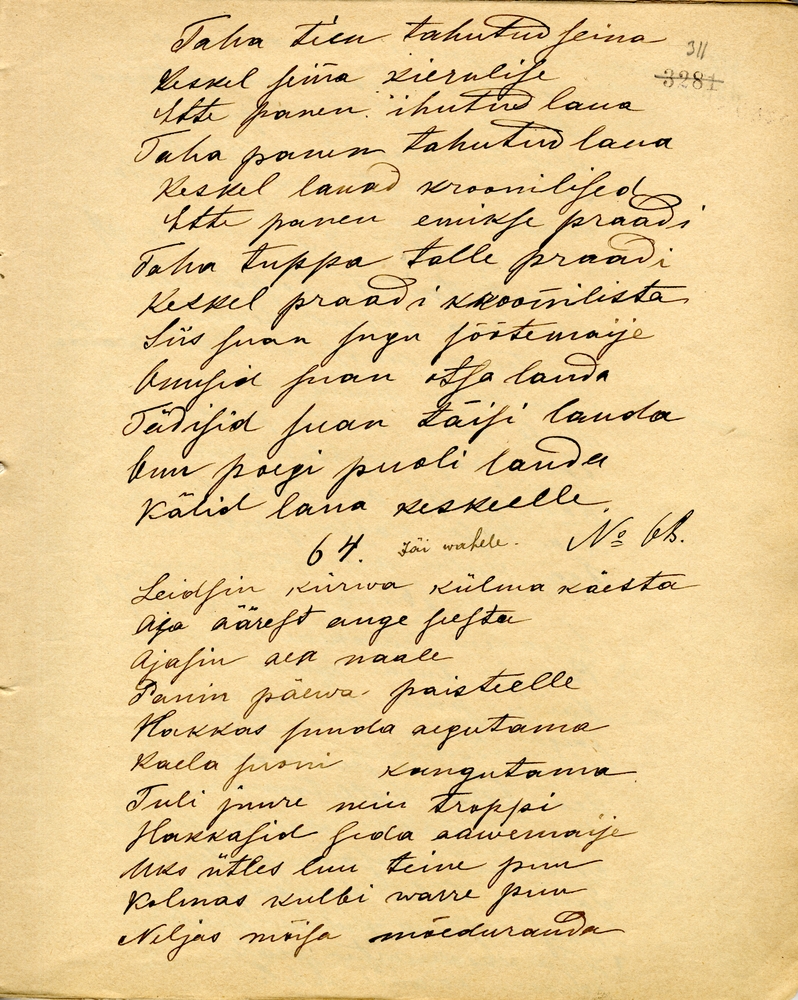 Taha tien tahutud seina
311
3281
Keskel seina kieralise
Ette panen ihutud laua
Taha panen tahutud laua
Keskel lauad kroonilised
Ette panen emikse praadi
Taha tuppa talle praadi
Keskel praadi kroonilista
Siis suan sugu söötemaije
Onusid suan otsa lauda
Tädisid suan täisi lauda
Onu poegi puoli lauda
Kälid laua keskeelle
64. Jäi wahele. No 68.
Leidsin kürwa külma käesta
Aja äärest ange seesta
Ajasin aea naale
Panin päewa paisteelle
Hakkas suuda aegutama
Kaela suoni kangutama
Tuli juure miu troppi
Hakkasid seda aawemaije
Üks ütles luu teine puu
Kolmas kulbi warre puu
Neljas mõisa mõeduranda